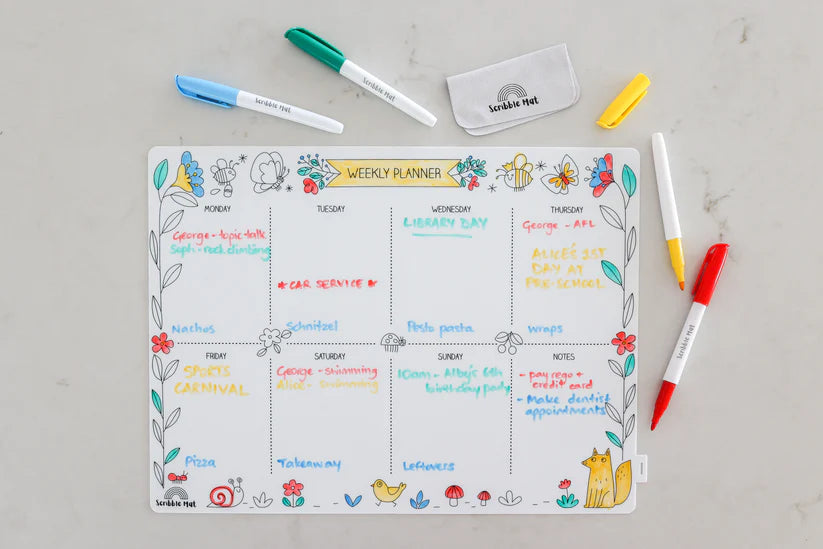 Scribble Mat
Scribble Mat
Scribble Mat
WEEKLY PLANNER
MONDAY
George - topic talk
Soph - rock climbing
Nachos
TUESDAY
* CAR SERVICE *
Schnitzel
WEDNESDAY
LIBRARY DAY
Pesto pasta
THURSDAY
George - AFL
ALICE'S 1ST
DAY AT
PRE-SCHOOL
wraps
Scribble Mat
FRIDAY
SPORTS
CARNIVAL
Pizza
SATURDAY
George - swimming
Alice - swimming
Takeaway
SUNDAY
10am - Alby's 6th
birthday party
Leftovers
NOTES
- pay rego +
credit card
- Make dentist
appointments
Scribble Mat